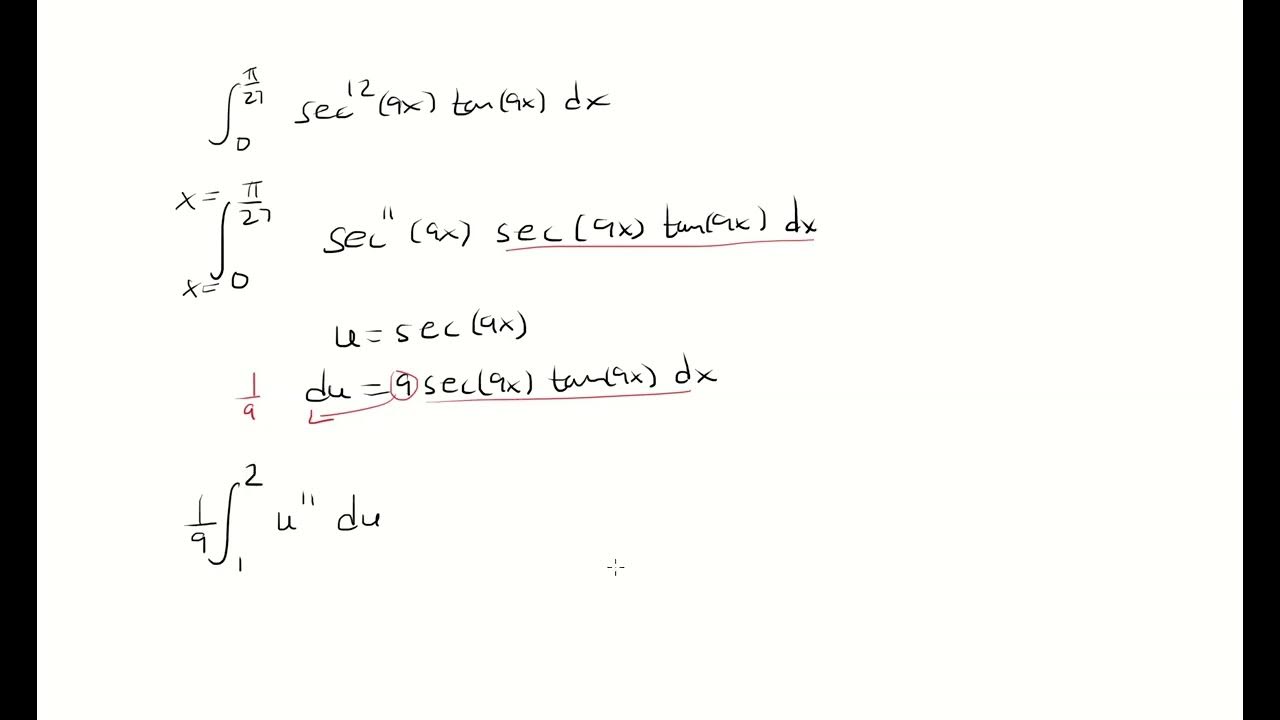 ∫₀^(π/27) sec¹²(9x) tan(9x) dx
∫_(x=0)^(x=π/27) sec¹¹(9x) sec(9x) tan(9x) dx
u = sec(9x)
1/9 du = 9 sec(9x) tan(9x) dx
1/9 ∫₁² u¹¹ du